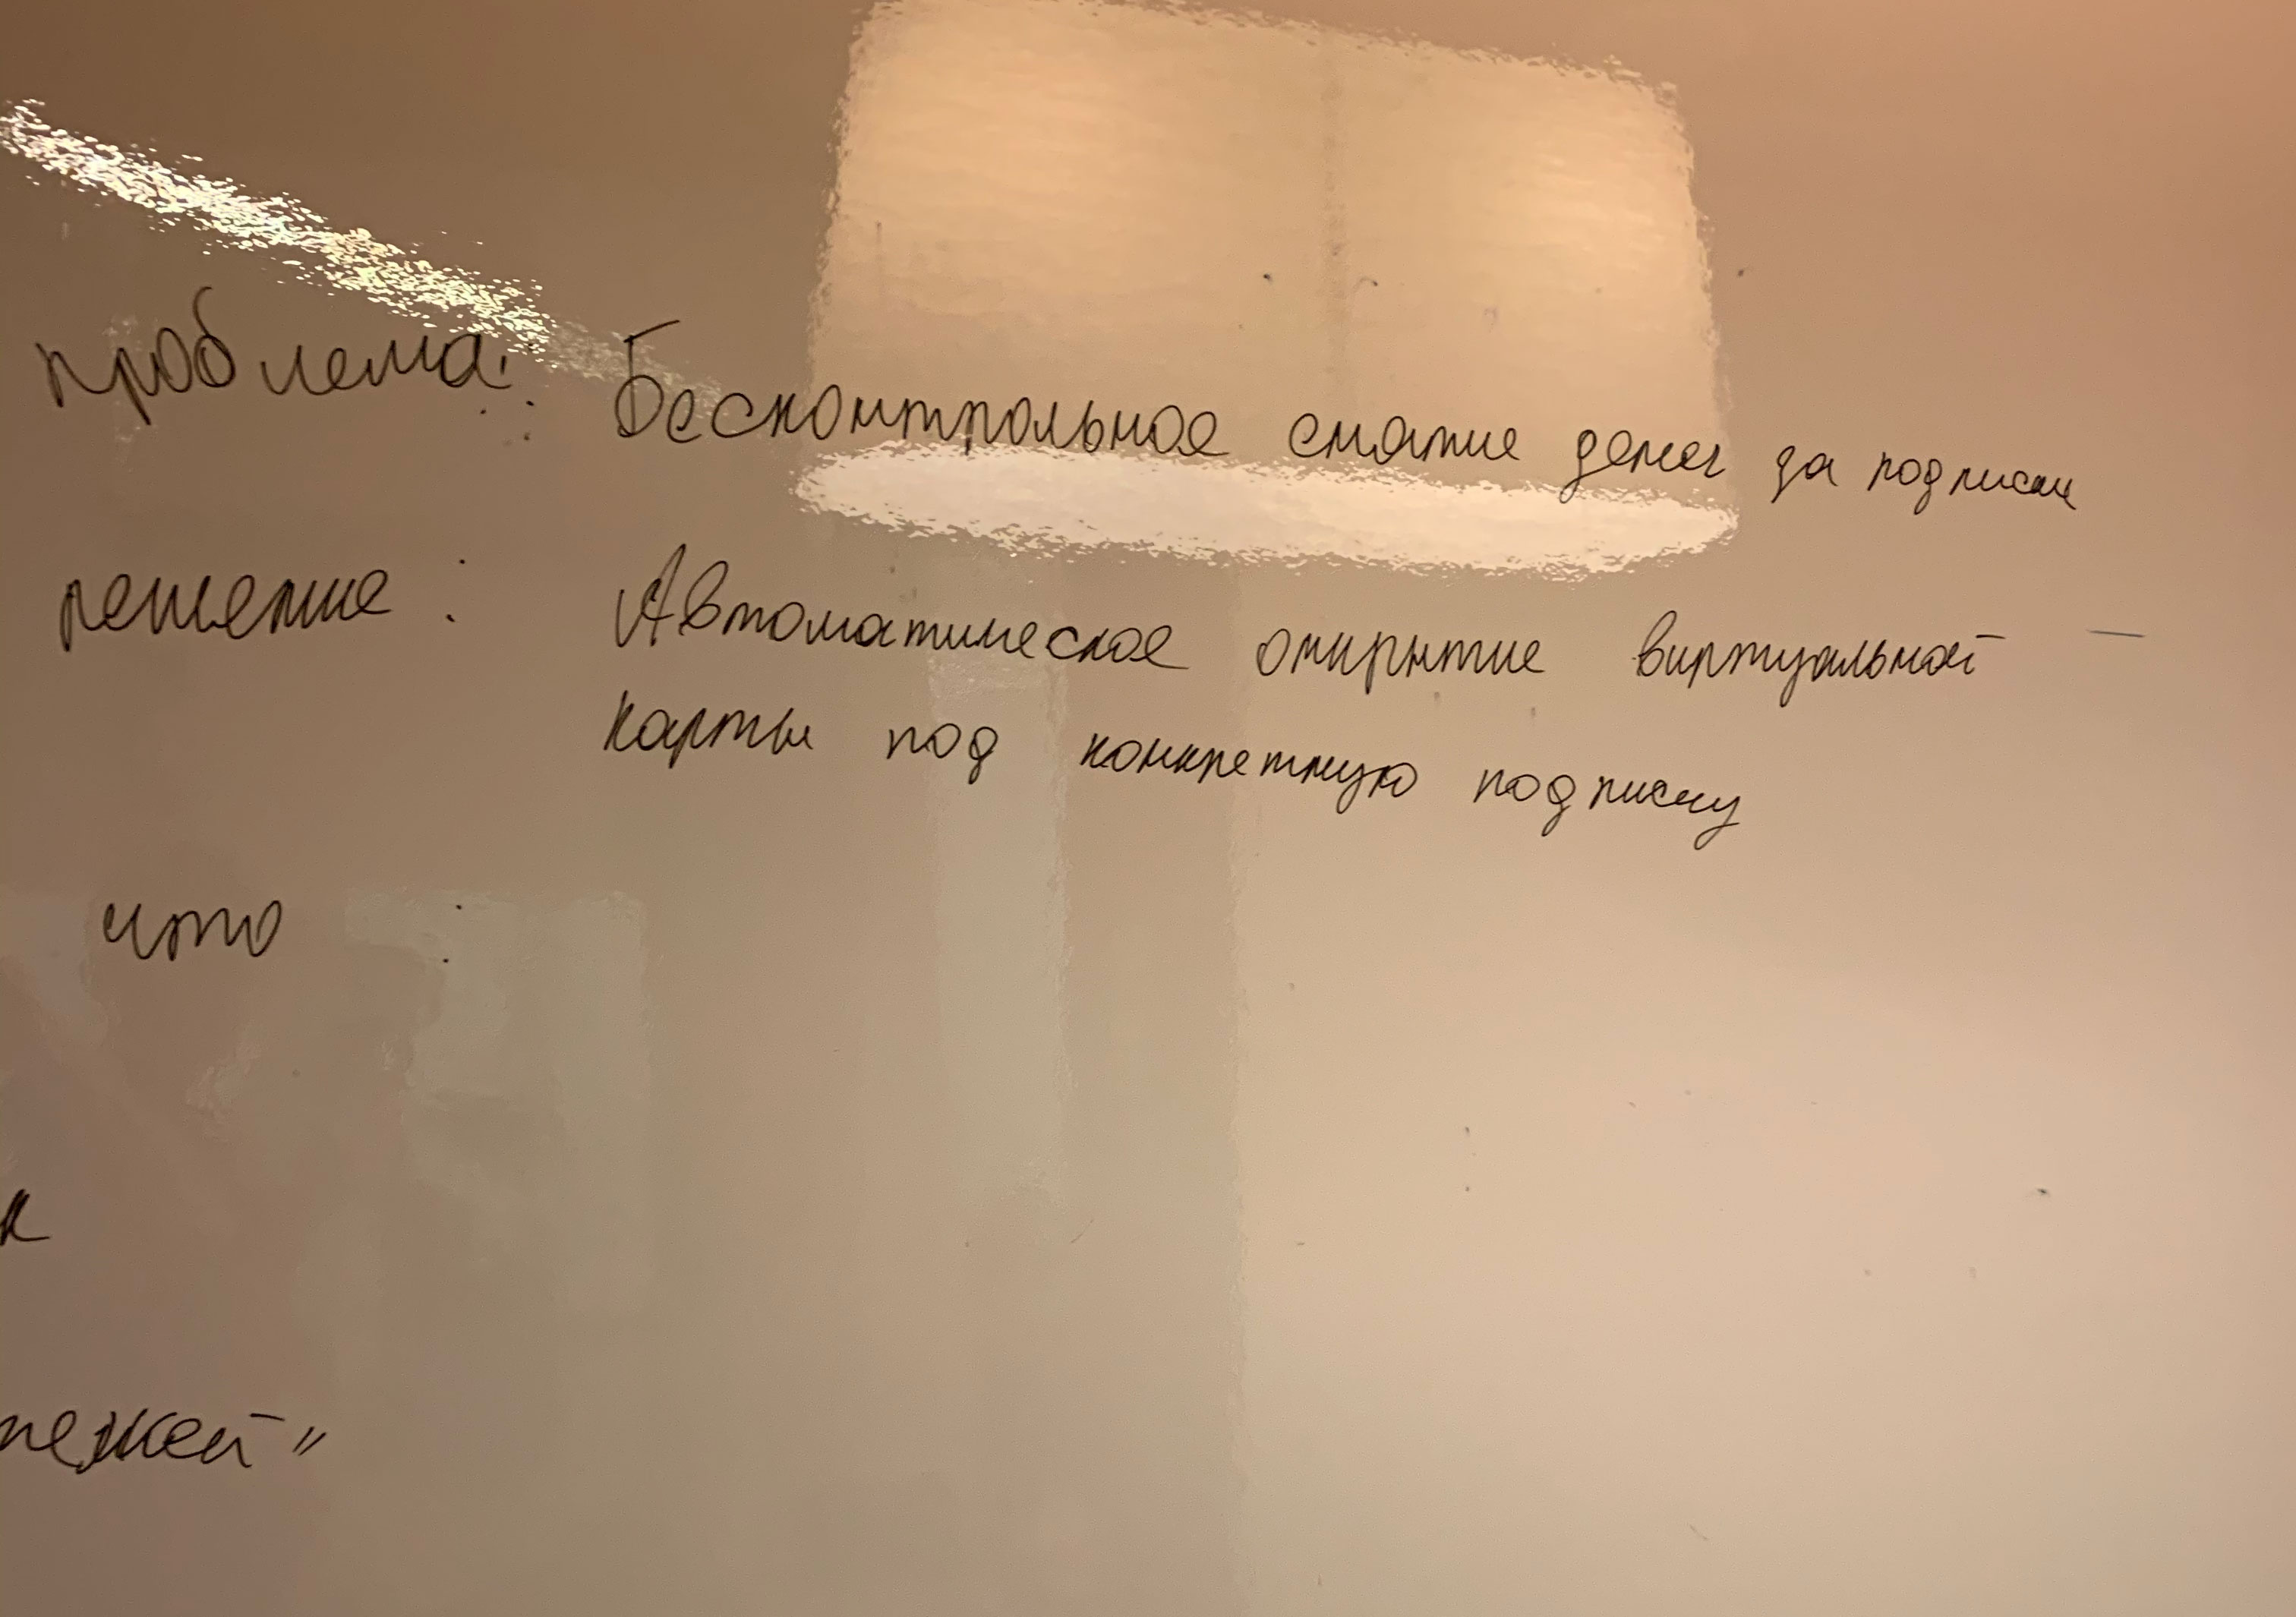 проблема: Бесконтрольное снятие денег за подписки
решение: Автоматическое открытие виртуальной
карты под конкретную подписку
что :
к
нежей"